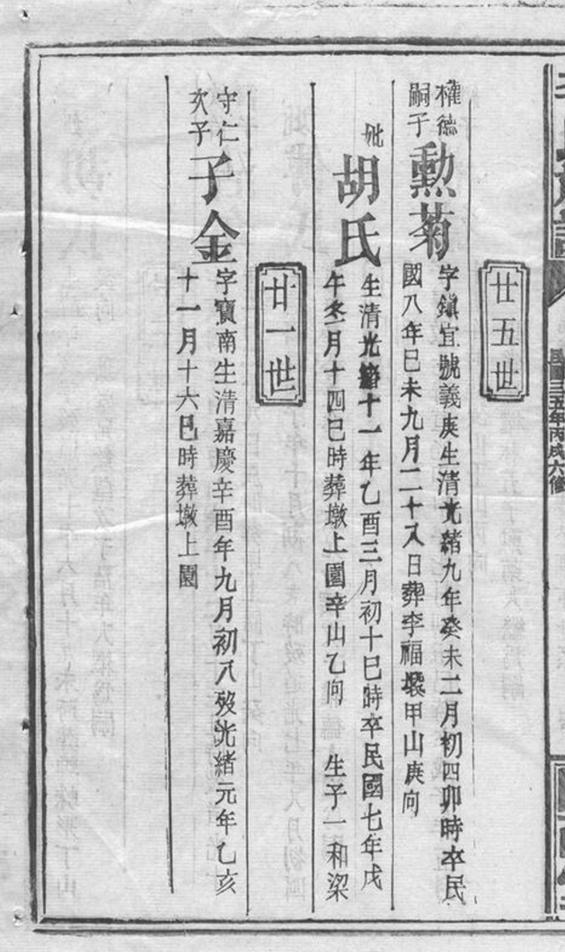 民國三五年丙戌六修
廿五世
權德
嗣子
勲菊
字鎮宜號義庚生清光緒九年癸未二月初四卯時卒民
國八年己未九月二十八日葬李福壪甲山庚向
妣
胡氏
生清光緒十一年乙酉三月初十巳時卒民國七年戊
午冬月十四巳時葬墩上園辛山乙向　生子一和梁
廿一世
守仁
次子
子金
字寶南生清嘉慶辛酉年九月初八歿光緒元年乙亥
十一月十六巳時葬墩上園